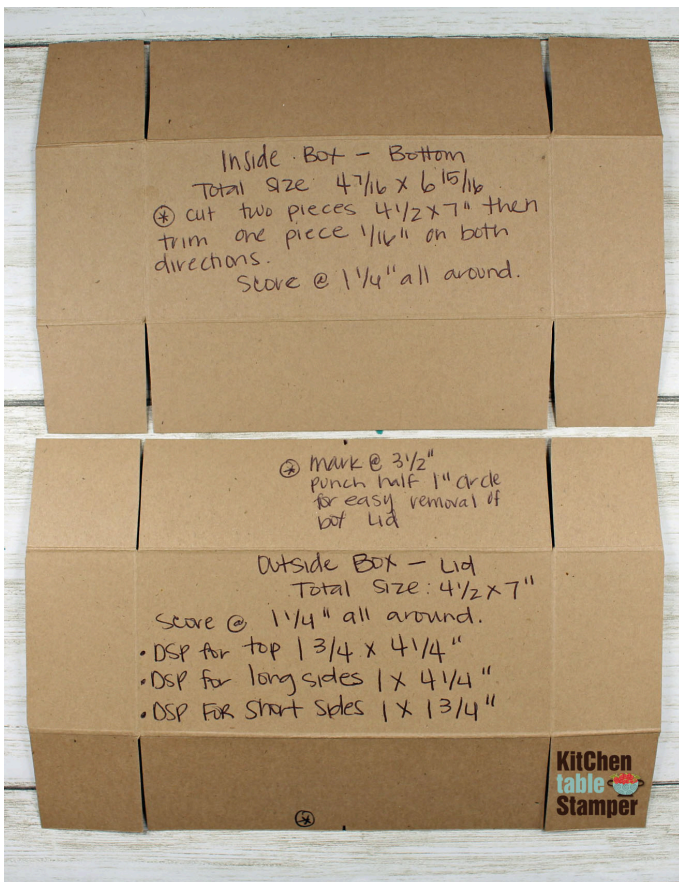 Inside Box - Bottom
Total Size 4 7/16 x 6 15/16
* cut two pieces 4 1/2 x 7" then
trim one piece 1/16" on both
directions.
Score @ 1 1/4" all around.
* mark @ 3 1/2"
punch half 1" circle
for easy removal of
bot Lid
Outside Box - Lid
Total Size: 4 1/2 x 7"
Score @ 1 1/4" all around.
• DSP for top 1 3/4 x 4 1/4"
• DSP for long sides 1 x 4 1/4"
• DSP FOR Short Sides 1 x 1 3/4"
*
KitChen
table
Stamper